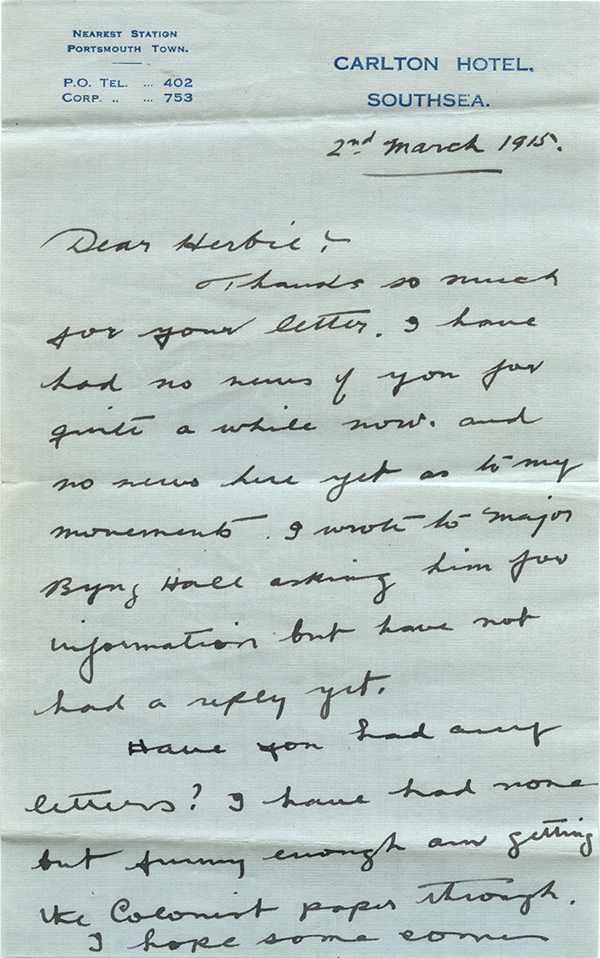 NEAREST STATION
PORTSMOUTH TOWN.
P.O. TEL. ... 402
CORP. „ ... 753
CARLTON HOTEL,
SOUTHSEA.
2nd March 1915.
Dear Herbie:
Thanks so much
for your letter. I have
had no news of you for
quite a while now. and
no news here yet as to my
movements. I wrote to Major
Byng Hall asking him for
information but have not
had a reply yet.
Have you had any
letters? I have had none
but funny enough am getting
the Colonist paper through.
I hope some comes